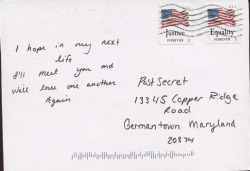 Justice
FOREVER
Equality
FOREVER
I hope in my next
life
I'll meet you and
we'll love one another
Again
PostSecret
13345 Copper Ridge
Road
Germantown Maryland
20874